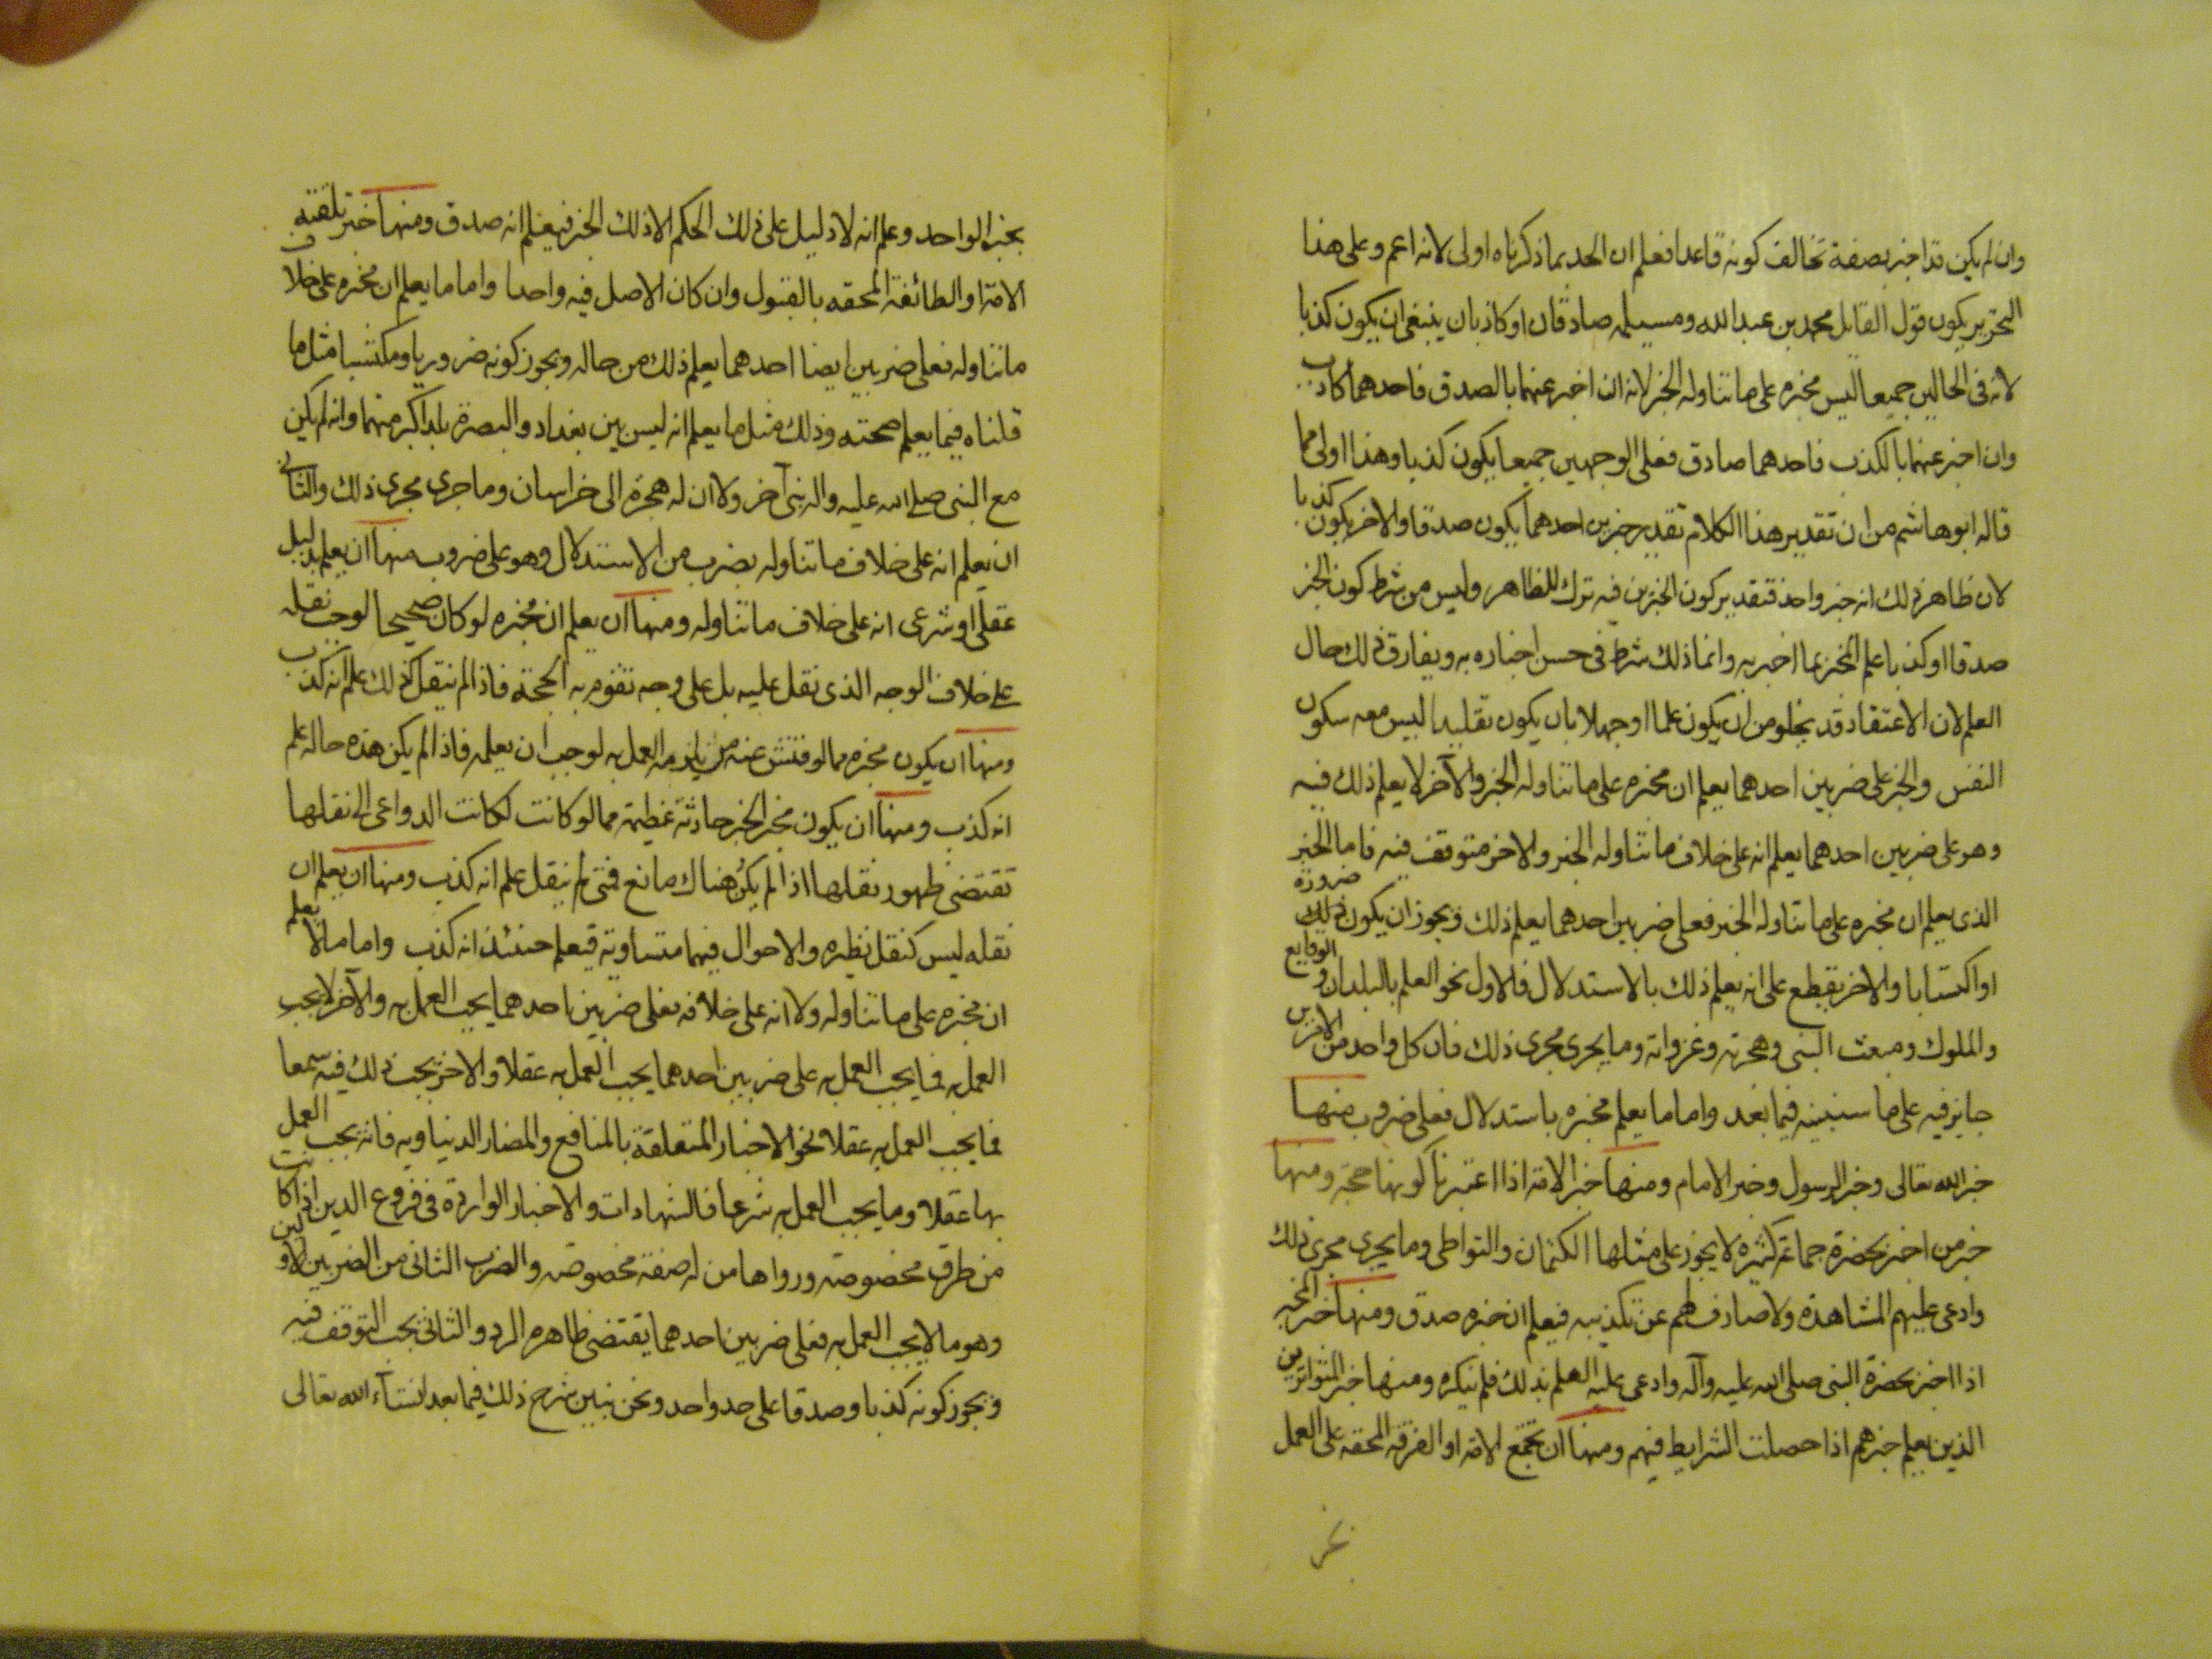 وان لم يكن قد اخبر بصفة تخالف كونه قاعدا فعلم ان الحد بما ذكرناه اولى لانه اعم وعلى هذا
التحرير يكون قول القايل محمد بن عبد الله ومسيلمه صادقان او كاذبان ينبغي ان يكون كذبا
لانه في الحالين جميعا ليس مخبره على ما تناوله الخبر لانه ان اخبر عنهما بالصدق فاحدهما كاذب
وان اخبر عنهما بالكذب فاحدهما صادق فعلى الوجهين جميعا يكون كذبا وهذا اولى مما
قاله ابو هاشم من ان تقدير هذا الكلام تقدير خبرين احدهما يكون صدقا والاخر يكون كذبا
لان ظاهر ذلك انه خبر واحد فتقدير كون الخبرين فيه ترك للظاهر وليس من شرط كون الخبر
صدقا او كذبا علم المخبر بما اخبر به وانما ذلك شرط في حسن اخباره به ويفارق ذلك حال
العلم لان الاعتقاد قد يخلو من ان يكون علما او جهلا بان يكون تقليدا ليس معه سكون
النفس والخبر على ضربين احدهما يعلم ان مخبره على ما تناوله الخبر والآخر لا يعلم ذلك فيه
وهو على ضربين احدهما يعلم انه على خلاف ما تناوله الخبر والاخر متوقف فيه فاما الخبر
الذي يعلم ان مخبره على ما تناوله الخبر فعلى ضربين احدهما يعلم ذلك ويجوز ان يكون ذلك ضرورة
او اكتسابا والاخر يقطع على انه يعلم ذلك بالاستدلال فالاول نحو العلم بالبلدان والوقايع
والملوك ومبعث النبي وهجرته وغزواته وما يجري مجرى ذلك فان كل واحد من الامرين
جايز فيه على ما سنبينه فيما بعد واما ما يعلم مخبره باستدلال فعلى ضروب منها
خبر الله تعالى وخبر الرسول وخبر الامام ومنها خبر الامة اذا اعتبرنا كونها حجة ومنها
خبر من اخبر بحضرة جماعة كثيره لا يجوز على مثلها الكتمان والتواطي وما يجري مجرى ذلك
وادعى عليهم المشاهدة ولا صارف لهم عن تكذيبه فيعلم ان خبره صدق ومنها خبر المخبر
اذا اخبر بحضرة النبي صلى الله عليه وآله وادعى عليه العلم بذلك فلم ينكره ومنها خبر المتواترين
الذين يعلم خبرهم اذا حصلت الشرايط فيهم ومنها ان تجتمع الامة او الفرقة المحقه على العمل
بخبر الواحد وعلم انه لا دليل على ذلك الحكم الا ذلك الخبر فيعلم انه صدق ومنها خبر تلقته
الامة او الطائفة المحقه بالقبول وان كان الاصل فيه واحدا واما ما يعلم ان مخبره على خلاف
ما تناوله فعلى ضربين ايضا احدهما يعلم ذلك من حاله ويجوز كونه ضروريا ومكتسبا مثل ما
قلناه فيما يعلم صحته وذلك مثل ما يعلم انه ليس بين بغداد والبصرة بلد اكبر منهما وانه لم يكن
مع النبي صلى الله عليه واله نبي آخر ولا ان له هجرة الى خراسان وما جرى مجرى ذلك والثاني
ان يعلم انه على خلاف ما تناوله بضرب من الاستدلال وهو على ضروب منها ان يعلم بدليل
عقلي او شرعي انه على خلاف ما تناوله ومنها ان يعلم ان مخبره لو كان صحيحا لوجب نقله
على خلاف الوجه الذي نقل عليه بل على وجه تقوم به الحجة فاذا لم ينقل كذلك علم انه كذب
ومنها ان يكون مخبره مما لو فتش عنه من يلزمه العمل به لوجب ان يعلمه فاذا لم يكن هذه حاله علم
انه كذب ومنها ان يكون مخبر الخبر حادثة عظيمة مما لو كانت لكانت الدواعي الى نقلها
تقتضي ظهور نقلها اذا لم يكن هناك مانع فمتى لم ينقل علم انه كذب ومنها ان يعلم ان
نقله ليس كنقل نظيره والاحوال فيهما متساوية فيعلم حينئذ انه كذب واما ما لا يعلم
ان مخبره على ما تناوله ولا انه على خلافه فعلى ضربين احدهما يجب العمل به والآخر لا يجب
العمل به فما يجب العمل به على ضربين احدهما يجب العمل به عقلا والاخر يجب ذلك فيه سمعا
فما يجب العمل به عقلا نحو الاخبار المتعلقة بالمنافع والمضار الدنياويه فانه يجب العمل
بها عقلا وما يجب العمل به شرعا فالشهادات والاخبار الواردة في فروع الدين اذا كانت
من طرق مخصوصه ورواها من له صفة مخصوصه والضرب الثاني من الضربين الاولين
وهو ما لا يجب العمل به فعلى ضربين احدهما يقتضي ظاهره الرد والثاني يجب التوقف فيه
ويجوز كونه كذبا وصدقا على حد واحد ونحن نبين شرح ذلك فيما بعد انشآء الله تعالى